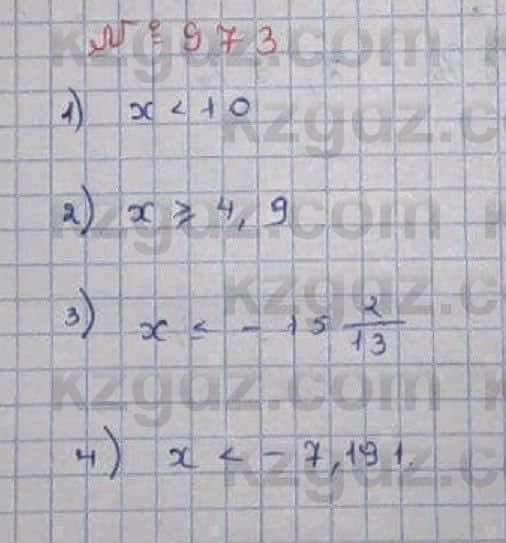 № 973
1) x < 10
2) x ⩾ 4,9
3) x ≤ -15 2/13
4) x < -7,191.
kzgdz.com